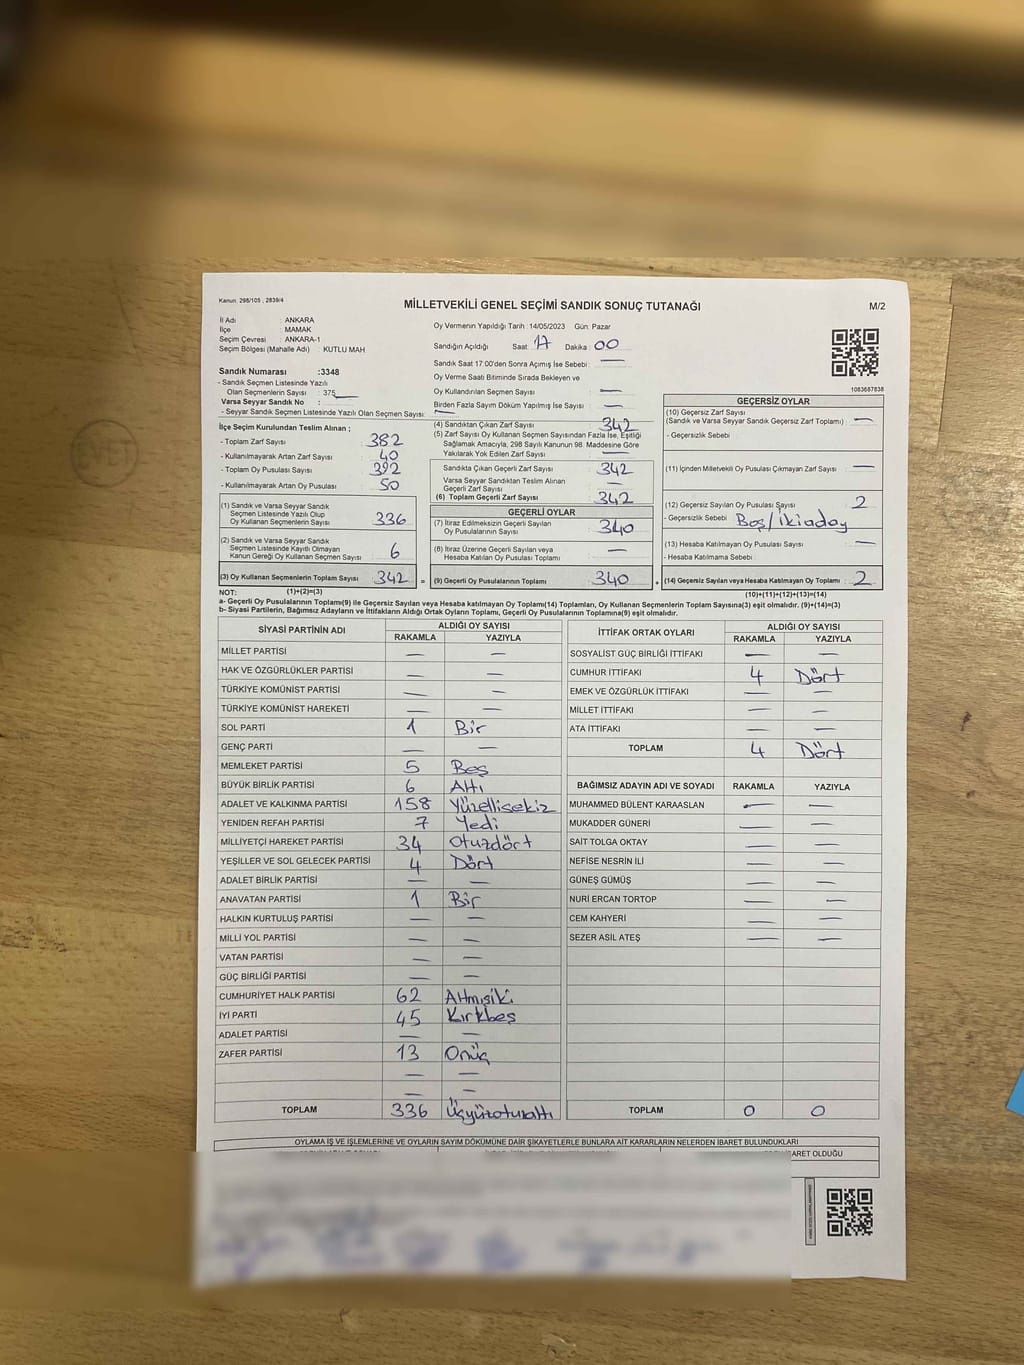 Kanun: 298/105 , 2839/4
MİLLETVEKİLİ GENEL SEÇİMİ SANDIK SONUÇ TUTANAĞI
M/2
İl Adı : ANKARA
İlçe : MAMAK
Seçim Çevresi : ANKARA-1
Seçim Bölgesi (Mahalle Adı) : KUTLU MAH
Oy Vermenin Yapıldığı Tarih : 14/05/2023 Gün: Pazar
Sandığın Açıldığı Saat: 17 Dakika : 00
Sandık Saat 17:00'den Sonra Açımış İse Sebebi : —
Oy Verme Saati Bitiminde Sırada Bekleyen ve
Oy Kullandırılan Seçmen Sayısı —
Birden Fazla Sayım Döküm Yapılmış İse Sayısı : —
1083687838
Sandık Numarası :3348
- Sandık Seçmen Listesinde Yazılı
Olan Seçmenlerin Sayısı : 375
Varsa Seyyar Sandık No :
- Seyyar Sandık Seçmen Listesinde Yazılı Olan Seçmen Sayısı: —
İlçe Seçim Kurulundan Teslim Alınan ;
- Toplam Zarf Sayısı : 382
- Kullanılmayarak Artan Zarf Sayısı : 40
- Toplam Oy Pusulası Sayısı : 392
- Kullanılmayarak Artan Oy Pusulası : 50
(1) Sandık ve Varsa Seyyar Sandık
Seçmen Listesinde Yazılı Olup
Oy Kullanan Seçmenlerin Sayısı : 336
(2) Sandık ve Varsa Seyyar Sandık
Seçmen Listesinde Kayıtlı Olmayan
Kanun Gereği Oy Kullanan Seçmen Sayısı : 6
(3) Oy Kullanan Seçmenlerin Toplam Sayısı : 342
(4) Sandıktan Çıkan Zarf Sayısı : 342
(5) Zarf Sayısı Oy Kullanan Seçmen Sayısından Fazla İse, Eşitliği
Sağlamak Amacıyla, 298 Sayılı Kanunun 98. Maddesine Göre
Yakılarak Yok Edilen Zarf Sayısı : —
Sandıkta Çıkan Geçerli Zarf Sayısı : 342
Varsa Seyyar Sandıktan Teslim Alınan
Geçerli Zarf Sayısı : —
(6) Toplam Geçerli Zarf Sayısı : 342
GEÇERLİ OYLAR
(7) İtiraz Edilmeksizin Geçerli Sayılan
Oy Pusulalarının Sayısı : 340
(8) İtiraz Üzerine Geçerli Sayılan veya
Hesaba Katılan Oy Pusulası Toplamı : —
= (9) Geçerli Oy Pusulalarının Toplamı : 340
GEÇERSİZ OYLAR
(10) Geçersiz Zarf Sayısı
(Sandık ve Varsa Seyyar Sandık Geçersiz Zarf Toplamı) : —
- Geçersizlik Sebebi :
(11) İçinden Milletvekili Oy Pusulası Çıkmayan Zarf Sayısı : —
(12) Geçersiz Sayılan Oy Pusulası Sayısı : 2
- Geçersizlik Sebebi : Boş/ikiaday
(13) Hesaba Katılmayan Oy Pusulası Sayısı : —
- Hesaba Katılmama Sebebi :
+ (14) Geçersiz Sayılan veya Hesaba Katılmayan Oy Toplamı : 2
NOT: (1)+(2)=(3)
(10)+(11)+(12)+(13)=(14)
a- Geçerli Oy Pusulalarının Toplamı(9) ile Geçersiz Sayılan veya Hesaba katılmayan Oy Toplamı(14) Toplamları, Oy Kullanan Seçmenlerin Toplam Sayısına(3) eşit olmalıdır. (9)+(14)=(3)
b- Siyasi Partilerin, Bağımsız Adayların ve İttifakların Aldığı Ortak Oyların Toplamı, Geçerli Oy Pusulalarının Toplamına(9) eşit olmalıdır.
SİYASİ PARTİNİN ADI ALDIĞI OY SAYISI
RAKAMLA YAZIYLA
MİLLET PARTİSİ — —
HAK VE ÖZGÜRLÜKLER PARTİSİ — —
TÜRKİYE KOMÜNİST PARTİSİ — —
TÜRKİYE KOMÜNİST HAREKETİ — —
SOL PARTİ 1 Bir
GENÇ PARTİ — —
MEMLEKET PARTİSİ 5 Beş
BÜYÜK BİRLİK PARTİSİ 6 Altı
ADALET VE KALKINMA PARTİSİ 158 Yüzellisekiz
YENİDEN REFAH PARTİSİ 7 Yedi
MİLLİYETÇİ HAREKET PARTİSİ 34 Otuzdört
YEŞİLLER VE SOL GELECEK PARTİSİ 4 Dört
ADALET BİRLİK PARTİSİ — —
ANAVATAN PARTİSİ 1 Bir
HALKIN KURTULUŞ PARTİSİ — —
MİLLİ YOL PARTİSİ — —
VATAN PARTİSİ — —
GÜÇ BİRLİĞİ PARTİSİ — —
CUMHURİYET HALK PARTİSİ 62 Altmışiki
İYİ PARTİ 45 Kırkbeş
ADALET PARTİSİ — —
ZAFER PARTİSİ 13 Onüç
— —
— —
TOPLAM 336 Üçyüzotuzaltı
İTTİFAK ORTAK OYLARI ALDIĞI OY SAYISI
RAKAMLA YAZIYLA
SOSYALİST GÜÇ BİRLİĞİ İTTİFAKI — —
CUMHUR İTTİFAKI 4 Dört
EMEK VE ÖZGÜRLÜK İTTİFAKI — —
MİLLET İTTİFAKI — —
ATA İTTİFAKI — —
TOPLAM 4 Dört
BAĞIMSIZ ADAYIN ADI VE SOYADI RAKAMLA YAZIYLA
MUHAMMED BÜLENT KARAASLAN — —
MUKADDER GÜNERİ — —
SAİT TOLGA OKTAY — —
NEFİSE NESRİN İLİ — —
GÜNEŞ GÜMÜŞ — —
NURİ ERCAN TORTOP — —
CEM KAHYERİ — —
SEZER ASİL ATEŞ — —
TOPLAM 0 0
OYLAMA İŞ VE İŞLEMLERİNE VE OYLARIN SAYIM DÖKÜMÜNE DAİR ŞİKAYETLERLE BUNLARA AİT KARARLARIN NELERDEN İBARET BULUNDUKLARI
İBARET OLDUĞU